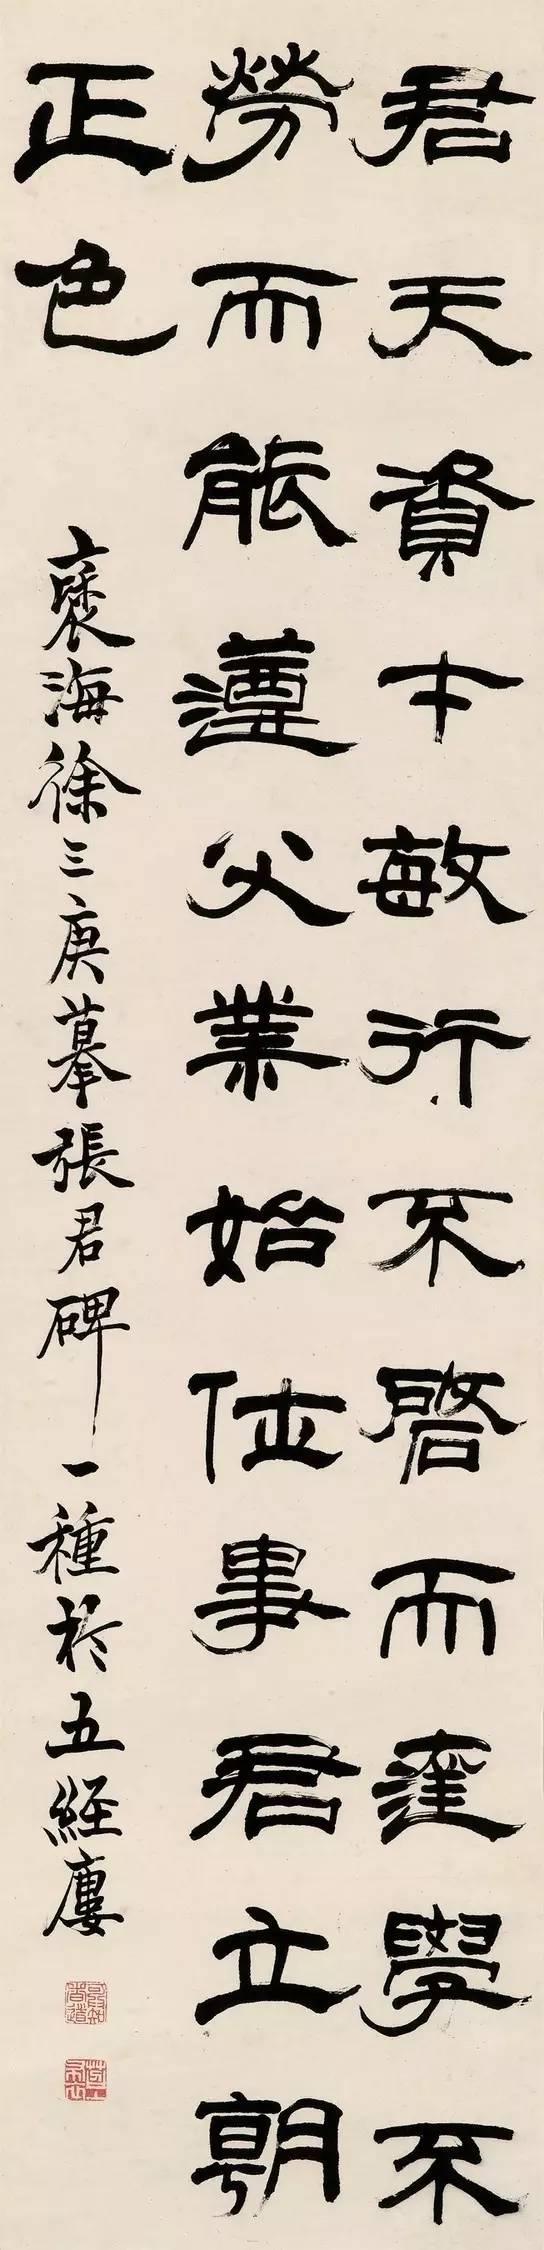 君天資才敏行不啓而達學不
勞而能遵父業始仕事君立朝
正色
褎海徐三庚摹張君碑一種於五經廔